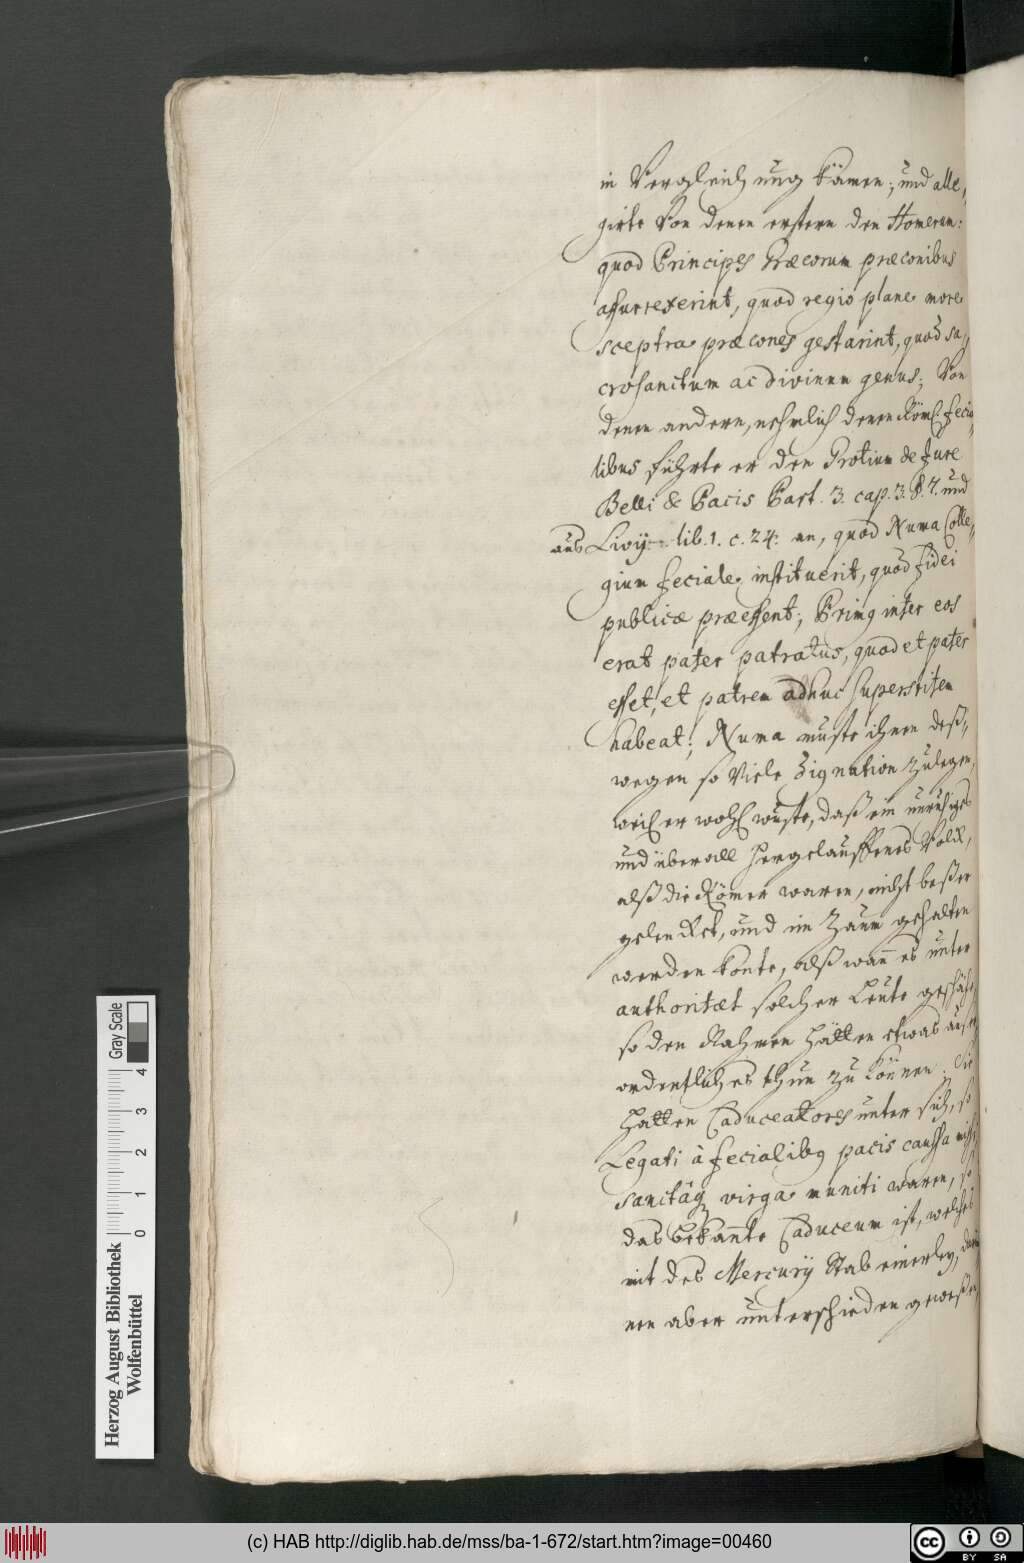 in Vergleichung kämen; und alle„
girte Von denen erstern den Homerum:
quod Principes Græcorum præconibus
assurrexerint, quod regio plane more
sceptra præcones gestarint, quod sa„
crosanctum ac divinum genus; Von
denen andern, nehmlich denen Röm. fecia„
libus führte er den Grotium de Jure
Belli & Pacis Part. 3. cap. 3. §. 7. und
aus Livÿ lib. 1. c. 24. an, quod Numa Colle„
gium feciale instituerit, quod fidei
publicæ præessent; Primg inter eos
erat pater patratus, quod et pater
esset, et patrem adhuc superstitem
habeat; Numa muste ihnen deß„
wegen so Viele Dignation zulegen,
weil er wohl wuste, daß ein unruhiges
und überall hergelauffenes Volck,
alß die Römer waren, nicht beßer
gelencket, und im Zaum gehalten
werden konte, alß wañ es unter
authoritæt solcher Leute geschähe,
so den Nahmen hätten etwas auser
ordentliches thun zu können. Sie
hatten Caduceatores unter sich, so
Legati à fecialibg pacis caussa missi
sanctâq virga muniti waren, so
das bekañte Caduceum ist, welches
mit des Mercurÿ Stab einerley, darin
nen aber unterschieden geweßen,
Gray Scale
0 1 2 3 4
Herzog August Bibliothek
Wolfenbüttel
(c) HAB http://diglib.hab.de/mss/ba-1-672/start.htm?image=00460
cc BY SA